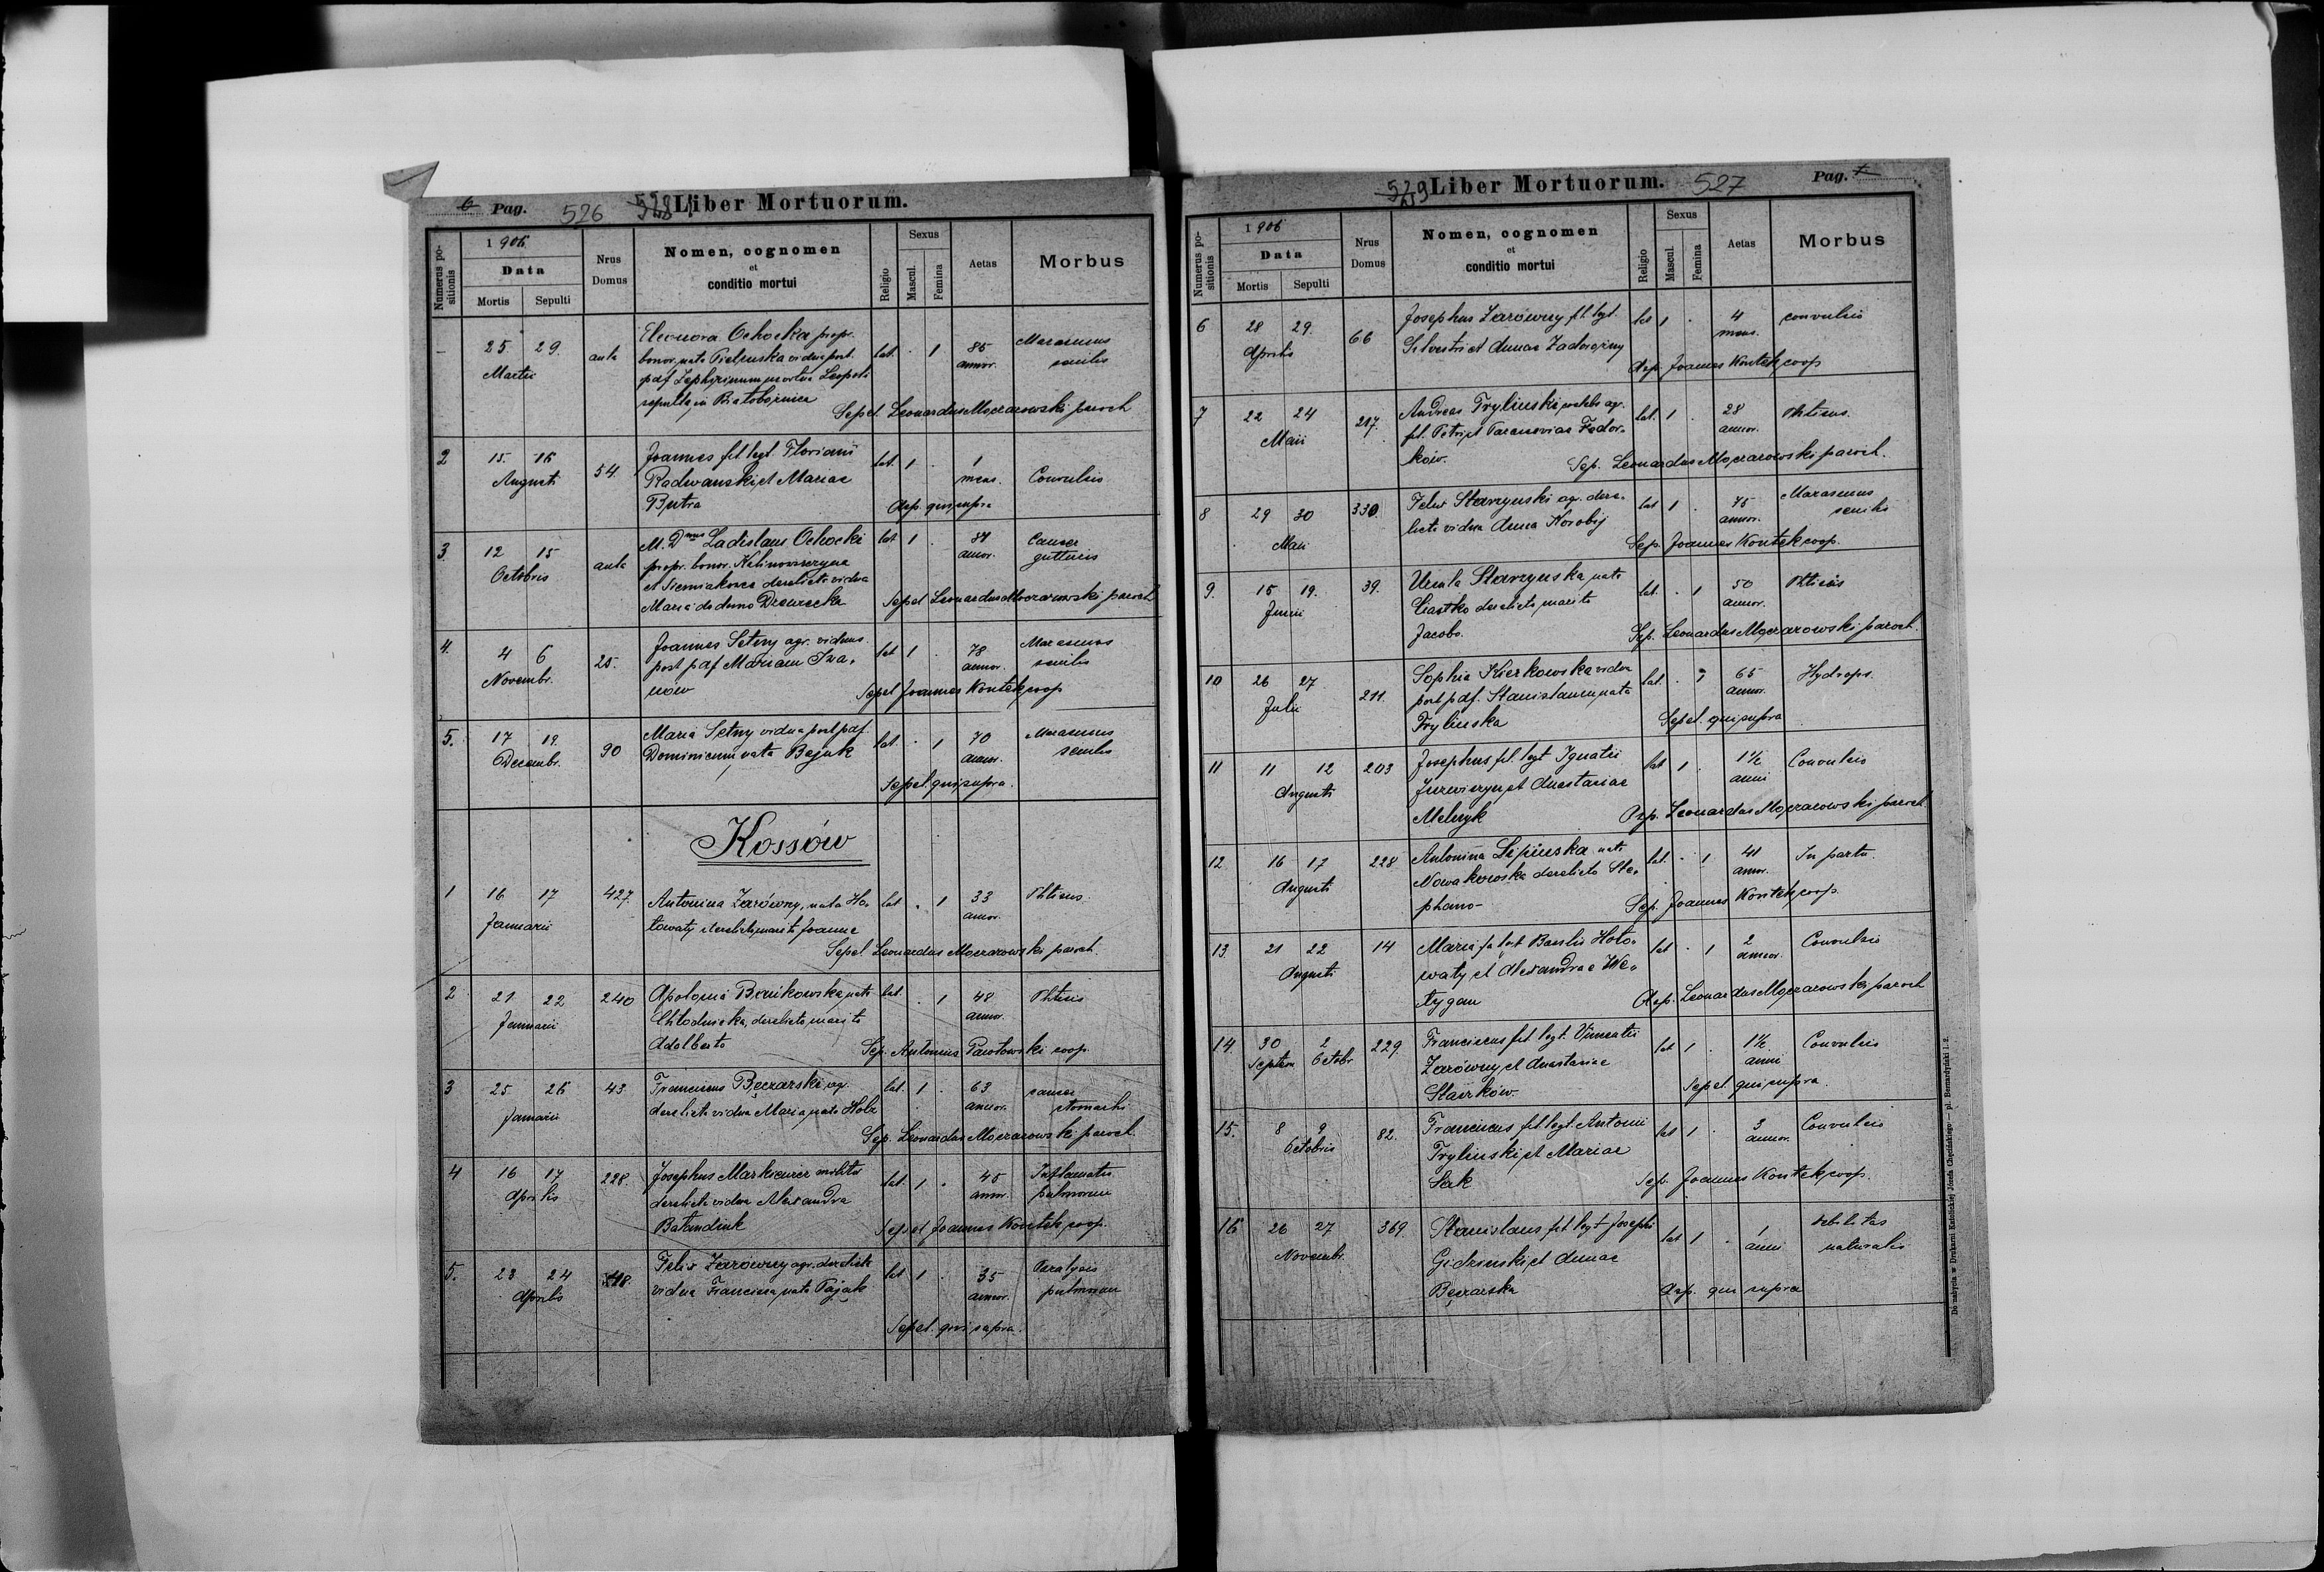 6 Pag. 526 528 Liber Mortuorum.
Numerus positionis
1906
Data
Mortis Sepulti
Nrus Domus
Nomen, cognomen
et
conditio mortui
Religio
Sexus
Mascul. Femina
Aetas
Morbus
25 29 aula Eleonora Ochocka propr. lat. · 1 85 Marasmus
Martii bonor. nata vidua post annor. senilis
pdf Zephirinum mortua Leopoli
sepulta in Białobożnica
Sepel. Leonardus Moczarowski paroch
2 15 16 54 Joannes fil. legt. Floriani lat. 1 · 1 Convulsio
Augusti Radwanski et Mariae mens.
Butra Asp. qui supra
3 12 15 aula M. Dnus Ladislaus Ochocki lat 1 · Cancer
Octobris propr. bonor. Kalinowszczyzna annor. gutturis
et Siemiakowce derelicta vidua
Maria de domo Drewnecka
Sepel Leonardus Moczarowski paroch
4. 4 6 25. Joannes Setny agr. viduus lat 1 · 78 Marasmus
Novembr. post pdf Mariam Iwa= annor. senilis
now Sepel Joannes Kontek coop
5. 17 19. 90 Maria Setny vidua post pdf. lat. · 1 70 Marasmus
Decembr. Dominicum nata Bejuk annor. senilis
Sepel. qui supra.
Kossów
1 16 17 427. Antonina Zarówny, nata Ho= lat · 1 33 Phtisis
Januarii łowaty derelict. marito Joanne annor.
Sepel Leonardus Moczarowski paroch.
2 21 22 240 Apolonia Bonikowska, nata lat. · 1 48 Phtisis
Januarii Chłodnicka, derelicto marito annor.
Adalberto Sep. Antonius coop.
3 25 26 43 Franciscus Bęczarski, agr. lat. 1 · 63 cancer
Januarii derelicta vidua Maria nata Holz annor. stomachi
Sep. Leonardus Moczarowski paroch.
4 16 17 228 Josephus Markiewicz lat. 1 · 45 Inflamatio
Aprilis derelicta vidua Alexandra annor. pulmonum
Bałandiuk Sepel Joannes Kontek coop.
5. 23 24 118 Felix Zarówny agr. derelicta lat 1 · 35 Paralysis
Aprilis vidua Francisca nata Pająk annor. pulmonum
Sepel. qui supra.
529 Liber Mortuorum. 527 Pag. 7
Numerus positionis
1906
Data
Mortis Sepulti
Nrus Domus
Nomen, cognomen
et
conditio mortui
Religio
Sexus
Mascul. Femina
Aetas
Morbus
6 28 29. 66 Josephus Zarówny fil. legt. lat 1 · 4 convulsio
Aprilis Silvestri et Annae Zadorożny mens.
Asp. Joannes Kontek coop
7 22 24 217. Andreas Tryliński caelebs agr. lat. 1 · 28 Phtisis.
Maii fil. Petri et Parasceviae Fedor= annor.
ków. Sep. Leonardus Moczarowski paroch.
8 29 30 330 Felix Starzyński agr. dere= lat 1 · 75 Marasmus
Maii licta vidua Anna Korobij annor. senilis
Sep. Joannes Kontek coop.
9. 15 19. 39. Ursula Starzyńska nata lat. · 1 50 Phtisis
Junii derelicto marito annor.
Jacobo. Sep. Leonardus Moczarowski paroch.
10 26 27 211. Sophia Kierkowska vidua lat. · 1 65 Hydrops.
Julii post pdf. Stanislaum nata annor.
Trylińska Sepel. qui supra
11 11 12 203 Josephus fil. legt Ignatii lat 1 · 1½ Convulsio
Augusti et Anastasiae anni
Melnyk Asp. Leonardus Moczarowski paroch
12. 16 17 228 Antonina Lipińska nata lat. · 1 41 In partu.
Augusti Nowakowska derelicto Ste= annor.
phano- Sep. Joannes Kontek coop.
13. 21 22 14 Maria fa legt Basilii Hoło= lat · 1 2 Convulsio
Augusti waty et Alexandrae We= annor.
tygan Asp. Leonardus Moczarowski paroch
14. 30 2 229. Franciscus fil. legt. Vincentii lat 1 · 1½ Convulsio
Septem Octobr Zarówny et Anastasiae anni
Sepel. qui supra.
15. 8 9 82. Franciscus fil. legt. Antonii lat 1 · 3 Convulsio
Octobris Tryliński et Mariae annor.
Sak Sep. Joannes Kontek coop.
16 26 27 369. Stanislaus fil. legt Josephi lat 1 · 1 debilitas
Novembr. Gidziński et Annae anni naturalis
Bęczarska Asp. qui supra
Do nabycia w Drukarni Katolickiej Józefa Chęcińskiego — pl. Bernardyński l. 2.